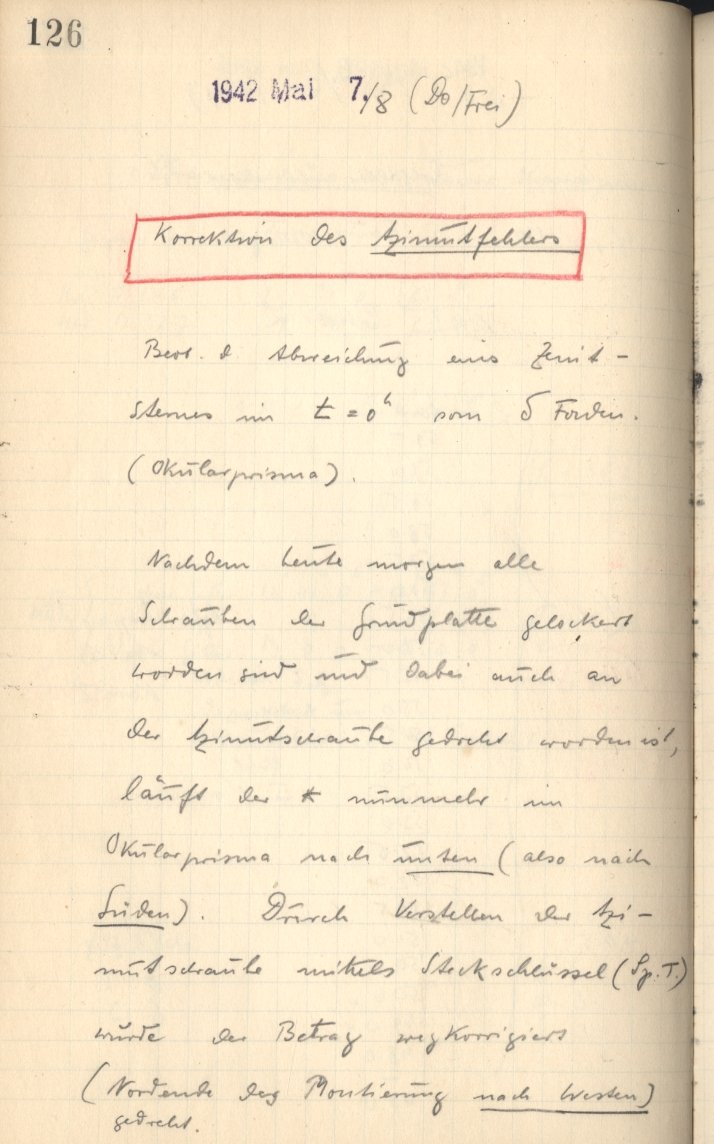 126
1942 Mai 7./8 (Do/Frei)
Korrektion des Azimutfehlers
Beob. d Abweichung eines Zenit-
Sternes im t = 0ʰ vom δ Faden.
(Okularprisma).
Nachdem heute morgen alle
Schrauben der Grundplatte gelockert
worden sind und dabei auch an
der Azimutschraube gedreht worden ist,
läuft der * nunmehr im
Okularprisma nach unten (also nach
Süden). Durch Verstellen der Azi-
mutschraube mittels Steckschlüssel (Sp. T.)
wurde der Betrag wegkorrigiert
(Nordende der Montierung nach Westen)
gedreht.